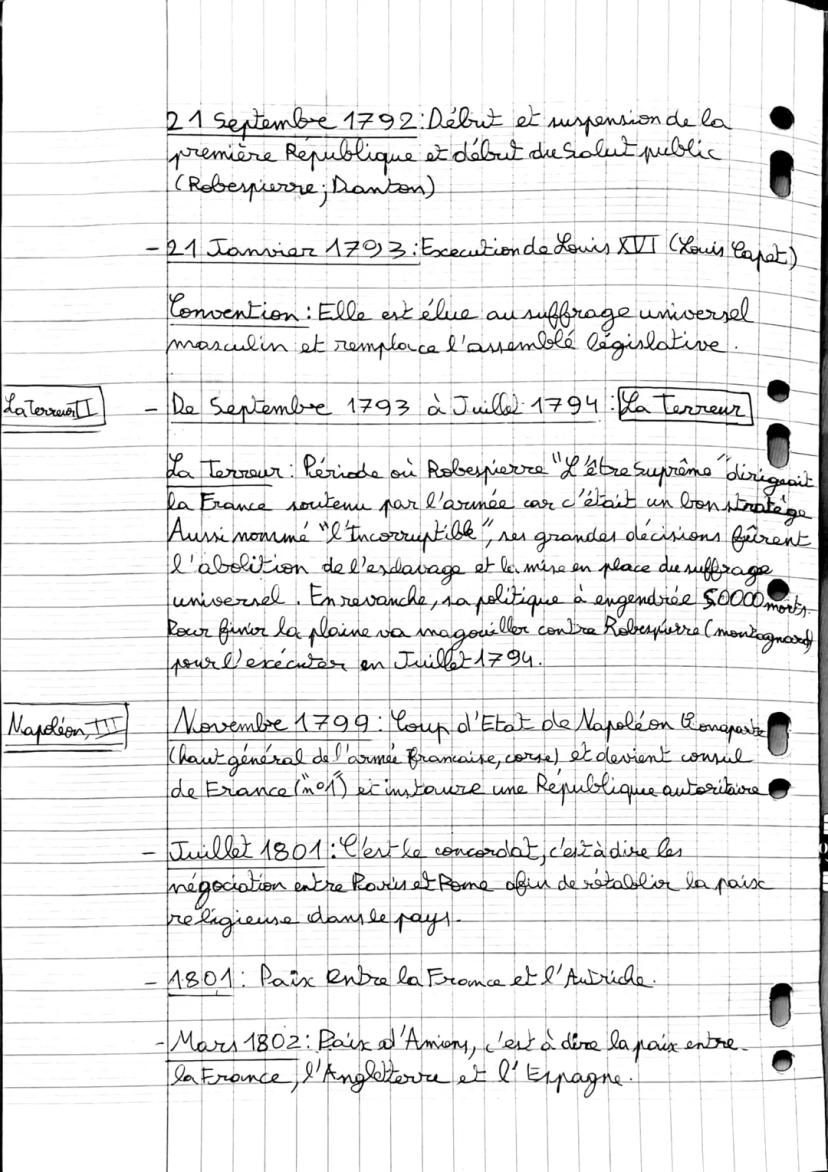 21 Septembre 1792 : Début et suspension de la
première République et début du Salut public
(Robespierre ; Danton)
- 21 Janvier 1793 : Execution de Louis XVI (Louis Capet)
Convention : Elle est élue au suffrage universel
masculin et remplace l'assemblé législative.
La Terreur II
- De Septembre 1793 à Juillet 1794 : La Terreur
La Terreur : Période où Robespierre "L'être Suprême" dirigeait
la France soutenu par l'armée car c'était un bon stratège
Aussi nommé "l'Incorruptible", ses grandes décisions fûrent
l'abolition de l'esclavage et la mise en place du suffrage
universel. En revanche, sa politique à engendrée 50000 morts.
Pour finir la plaine va magouiller contre Robespierre (montagnard)
pour l'exécuter en Juillet 1794.
Napoléon, III
Novembre 1799 : Coup d'Etat de Napoléon Bonaparte
(haut général de l'armée francaise, corse) et devient consul
de France ("n°1") et instaure une République autoritaire
- Juillet 1801 : C'est le concordat, c'est à dire les
négociation entre Paris et Rome afin de rétablir la paix
religieuse dans le pays.
- 1801 : Paix entre la France et l'Autriche.
- Mars 1802 : Paix d'Amiens, c'est à dire la paix entre
la France, l'Angleterre et l'Espagne.